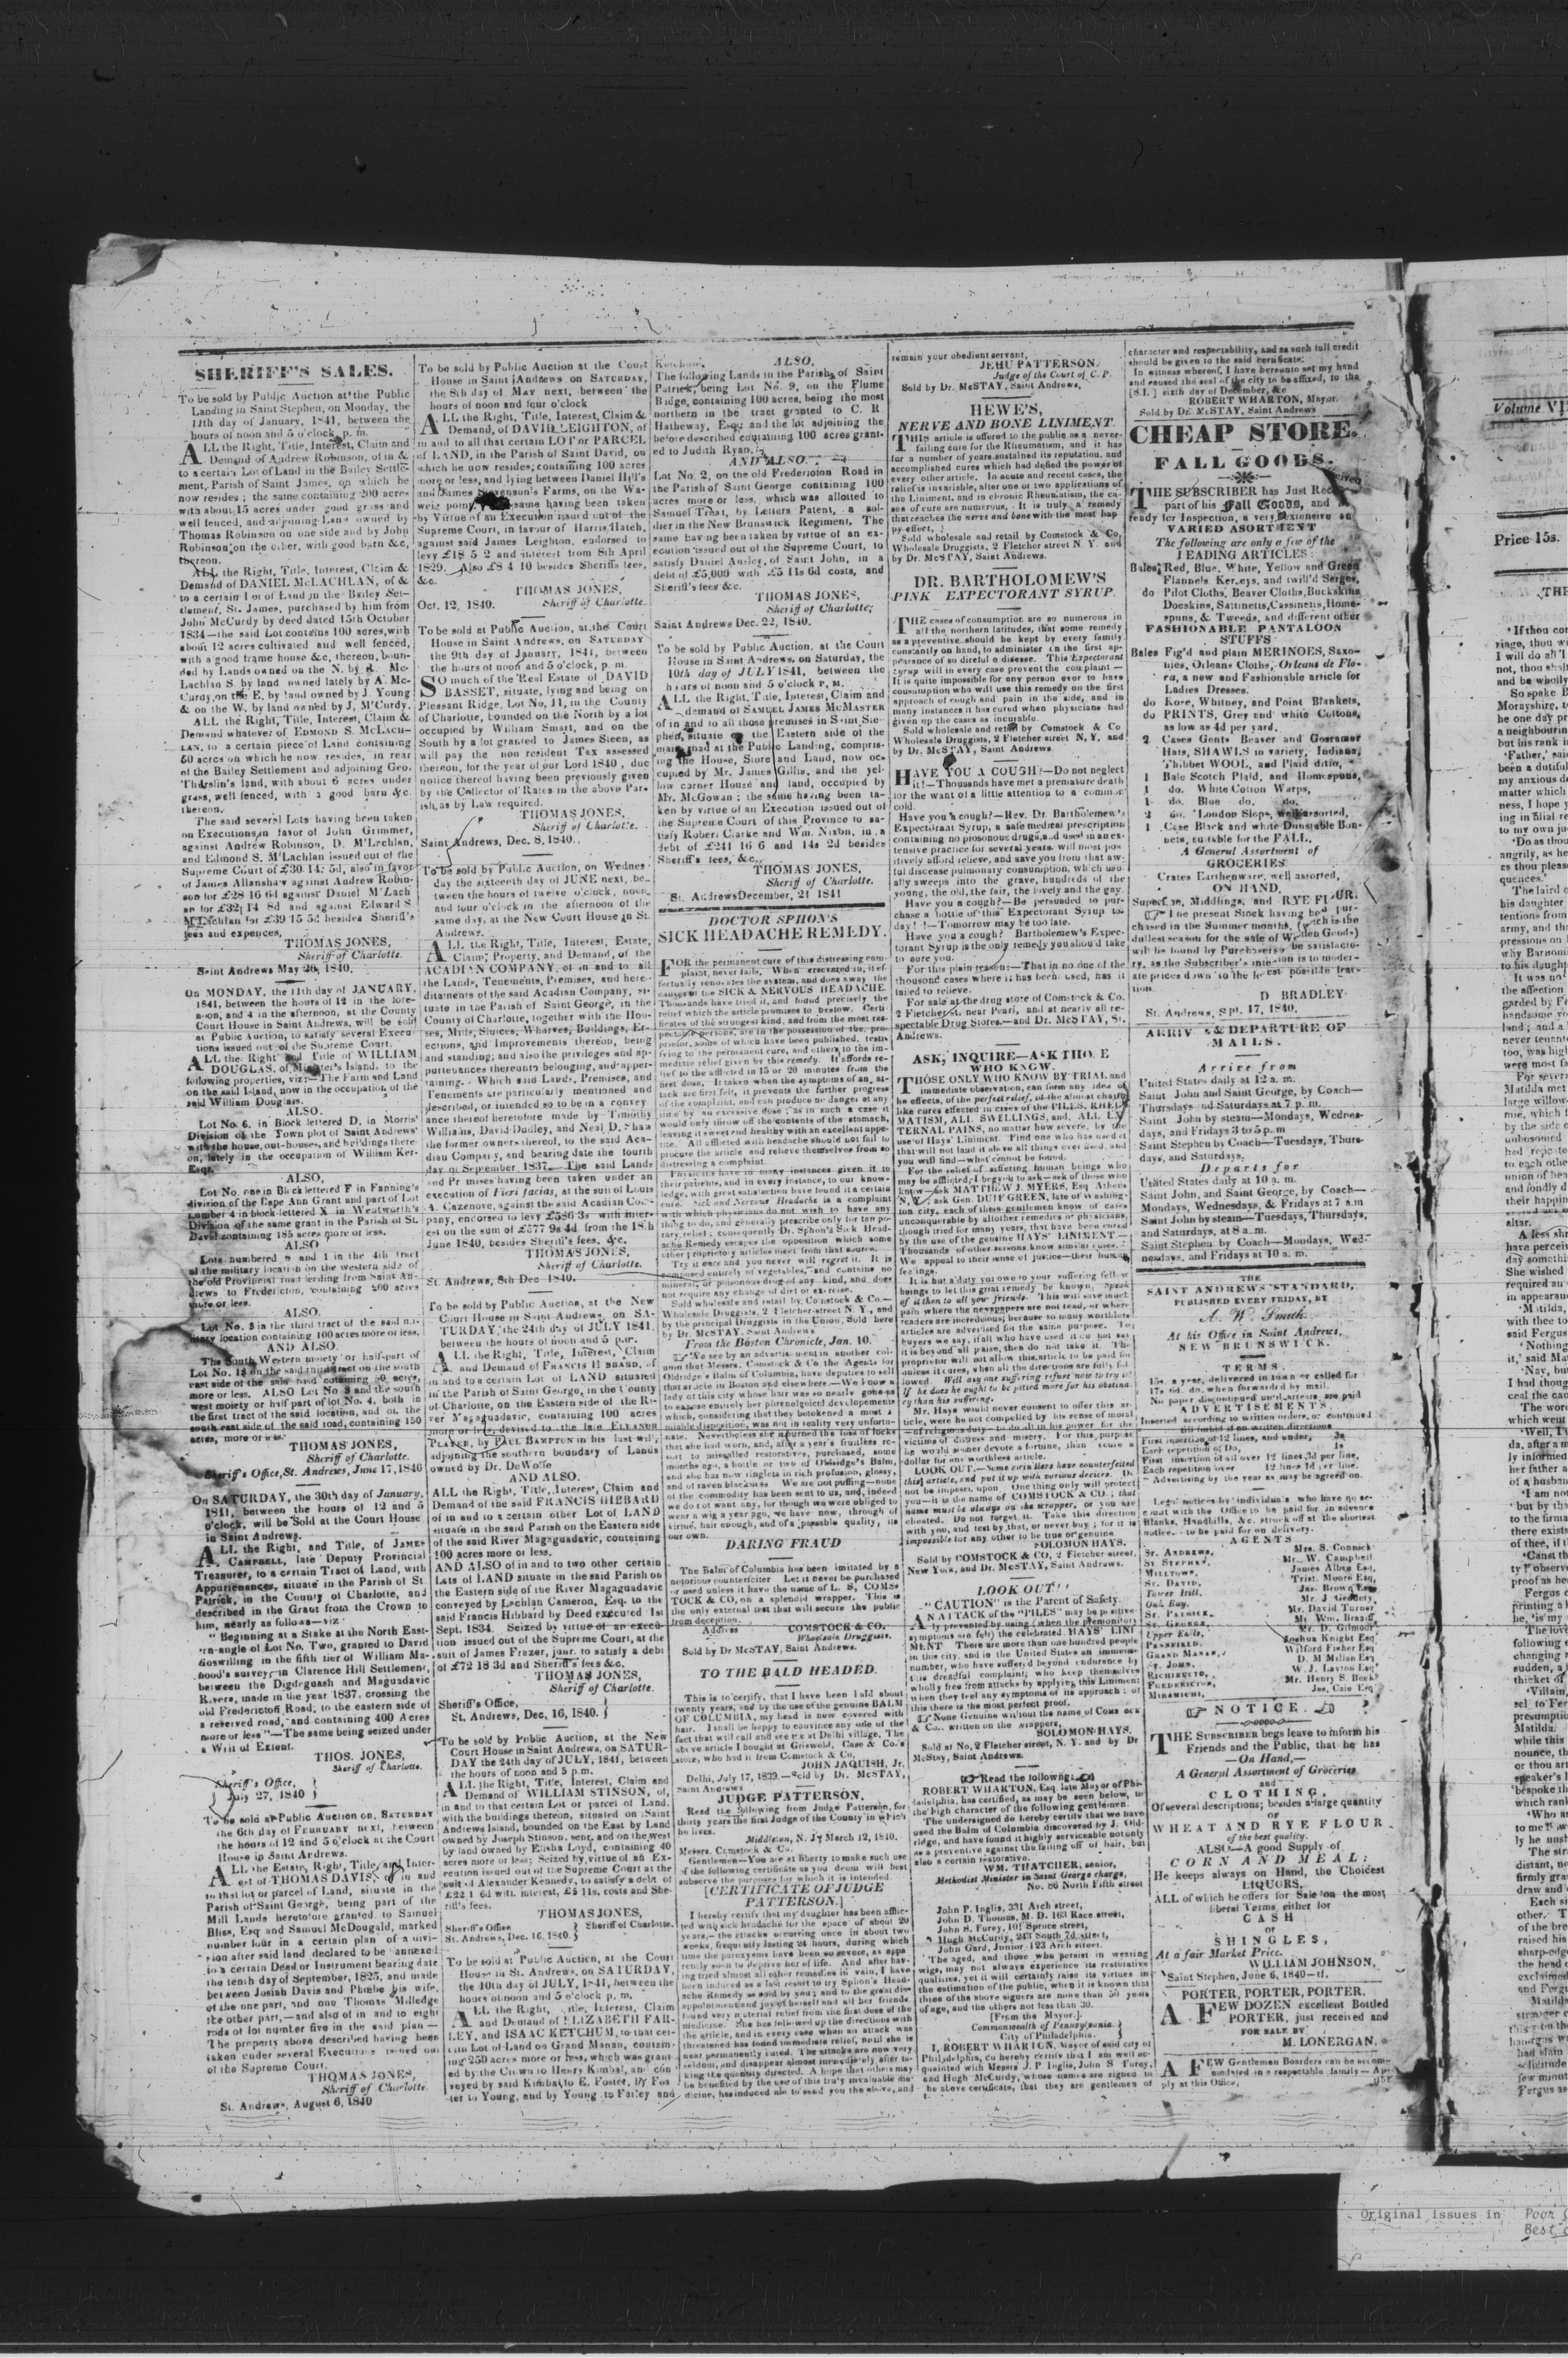 SHERIFF'S SALES.
To be sold by Public Auction at the Public
Landing in Saint Stephen, on Monday, the
11th day of January, 1841, between the
hours of noon and 5 o'clock, p. m.
ALL the Right, Title, Interest, Claim and
Demand of Andrew Robinson, of in &
to a certain Lot of Land in the Bailey Settle-
ment, Parish of Saint James, on which he
now resides; the same containing 200 acres
with about 15 acres under good grass and
well fenced, and adjoining Land owned by
Thomas Robinson on one side and by John
Robinson on the other, with good barn &c,
thereon.
ALL the Right, Title, Interest, Claim &
Demand of DANIEL McLACHLAN, of &
to a certain Lot of Land in the Bailey Set-
tlement, St. James, purchased by him from
John McCurdy by deed dated 15th October
1834—the said Lot contains 100 acres, with
about 12 acres cultivated and well fenced,
with a good frame house &c, thereon, boun-
ded by Lands owned on the N. by A. Mc-
Lachlan S. by land owned lately by A. Mc-
Curdy, on the E, by land owned by J. Young
& on the W. by land owned by J. M'Curdy.
ALL the Right, Title, Interest, Claim &
Demand whatever of EDMOND S. McLACH-
LAN, to a certain piece of Land containing
50 acres on which he now resides, in rear
of the Bailey Settlement and adjoining Geo.
land, with about 6 acres under
grass, well fenced, with a good barn &c.
thereon.
The said several Lots having been taken
on Executions in favor of John Grimmer,
against Andrew Robinson, D. M'Lachlan,
and Edmond S. M'Lachlan issued out of the
Supreme Court of £30 14: 5d, also in favor
of James Allanshaw against Andrew Robin-
son for £28 16 6d against Daniel M'Lach
an for £32; 14 8d and against Edward S
M'Lachlan for £39 15 5d besides Sheriff's
fees and expences,
THOMAS JONES,
Sheriff of Charlotte.
Saint Andrews May 26, 1840.
On MONDAY, the 11th day of JANUARY,
1841, between the hours of 12 in the fore-
noon, and 4 in the afternoon, at the County
Court House in Saint Andrews, will be sold
at Public Auction, to satisfy several Execu-
tions issued out of the Supreme Court.
ALL the Right and Title of WILLIAM
DOUGLAS, of Minister's Island, to the
following properties, viz:—The Farm and Land
on the said Island, now in the occupation of the
said William Douglass.
ALSO.
Lot No. 6, in Block lettered D, in Morris'
Division of the Town plot of Saint Andrews'
with the house, out-houses and buildings there-
on, lately in the occupation of William Ker-
Esqr.
ALSO,
Lot No. one in Block lettered F in Fanning's
division of the Cape Ann Grant and part of Lot
number 4 in block lettered X in Wentworth's
Division of the same grant in the Parish of St.
David containing 185 acres more or less.
ALSO
Lots numbered 8 and 1 in the 4th tract
of the military location on the western side of
the old Provincial road leading from Saint An-
drews to Fredericton, containing 200 acres
more or less.
ALSO.
Lot No. 8 in the third tract of the said mi-
litary location containing 100 acres more or less.
AND ALSO
The South Western moiety or half part of
Lot No. 18 on the said third tract on the south
east side of the said road containing 50 acres,
more or less. ALSO Lot No 3 and the south
west moiety or half part of lot No. 4, both in
the first tract of the said location, and on the
south east side of the said road, containing 150
acres, more or less.
THOMAS JONES,
Sheriff of Charlotte.
Sheriff's Office, St. Andrews, June 17, 1840
On SATURDAY, the 30th day of January,
1841, between the hours of 12 and 5
o'clock, will be Sold at the Court House
in Saint Andrews.
ALL the Right, and Title, of JAMES
CAMPBELL, late Deputy Provincial
Treasurer, to a certain Tract of Land, with
Appurtenances, situate in the Parish of St.
Patrick, in the County of Charlotte, and
described in the Grant from the Crown to
him, nearly as follows—viz:
"Beginning at a Stake at the North East-
ern angle of Lot No. Two, granted to David
Goswilling in the fifth tier of William Ma-
hood's survey in Clarence Hill Settlement,
between the Digdeguash and Maguadavic
Rivers, made in the year 1837, crossing the
old Fredericton Road, to the eastern side of
a reserved road, and containing 400 Acres
more or less"—The same being seized under
a Writ of Extent.
THOS. JONES,
Sheriff of Charlotte.
Sheriff's Office,
July 27, 1840
To be sold at Public Auction on, SATURDAY
the 6th day of FEBRUARY next, between
the hours of 12 and 5 o'clock at the Court
House in Saint Andrews.
ALL the Estate, Right, Title, and Inter-
est of THOMAS DAVIS, of in and
to that lot or parcel of Land, situate in the
Parish of Saint George, being part of the
Mill Lands heretofore granted to Samuel
Bliss, Esq and Samuel McDougald, marked
number four in a certain plan of a divi-
sion after said land declared to be annexed
to a certain Deed or Instrument bearing date
the tenth day of September, 1825, and made
between Josiah Davis and Phoebe his wife,
of the one part, and one Thomas Milledge
the other part,—and also of in and to eight
rods of lot number five in the said plan—
The property above described having been
taken under several Executions issued out
of the Supreme Court.
THOMAS JONES,
Sheriff of Charlotte.
St. Andrews, August 6, 1840
To be sold by Public Auction at the Court
House in Saint Andrews on SATURDAY,
the 8th day of MAY next, between the
hours of noon and four o'clock
ALL the Right, Title, Interest, Claim &
Demand, of DAVID LEIGHTON, of
in and to all that certain LOT or PARCEL
of LAND, in the Parish of Saint David, on
which he now resides; containing 100 acres
more or less, and lying between Daniel Hill's
and James Stevenson's Farms, on the Wa-
weig same having been taken
by Virtue of an Execution issued out of the
Supreme Court, in favour of Harris Hatch,
against said James Leighton, endorsed to
levy £18 5 2 and interest from 8th April
1829. Also £8 4 10 besides Sheriffs fees,
&c.
THOMAS JONES,
Oct. 12, 1840. Sheriff of Charlotte.
To be sold at Public Auction, at the Court
House in Saint Andrews, on SATURDAY
the 9th day of January, 1841, between
the hours of noon and 5 o'clock, p. m.
SO much of the Real Estate of DAVID
BASSET, situate, lying and being on
Pleasant Ridge, Lot No, 11, in the County
of Charlotte, bounded on the North by a lot
occupied by William Smart, and on the
South by a lot granted to James Steen, as
will pay the non resident Tax assessed
thereon, for the year of our Lord 1840, due
notice thereof having been previously given
by the Collector of Rates in the above Par-
ish, as by Law required.
THOMAS JONES,
Sheriff of Charlotte.
Saint Andrews, Dec. 8, 1840.
To be sold by Public Auction, on Wednes-
day the sixteenth day of JUNE next, be-
tween the hours of twelve o'clock, noon,
and four o'clock in the afternoon of the
same day, at the New Court House in St.
Andrews.
ALL the Right, Title, Interest, Estate,
Claim, Property, and Demand, of the
ACADIAN COMPANY, of in and to all
the Lands, Tenements, Premises, and here-
ditaments of the said Acadian Company, si-
tuate in the Parish of Saint George, in the
County of Charlotte, together with the Hou-
ses, Mills, Sluices, Wharves, Buildings, Er-
ections, and Improvements thereon, being
and standing; and also the privileges and ap-
purtenances thereunto belonging, and apper-
taining. Which said Lands, Premises, and
Tenements are particularly mentioned and
described, or intended so to be in a convey-
ance thereof heretofore made by Timothy
Williams, David Dudley, and Neal D. Shaw
the former owners thereof, to the said Aca-
dian Company, and bearing date the fourth
day of September 1837. The said Lands
and Premises having been taken under an
execution of Fieri facias, at the suit of Louis
A. Cazenove, against the said Acadian Com-
pany, endorsed to levy £5386 3s with inter-
est on the sum of £577 9s 4d from the 18th
June 1840, besides Sheriff's fees, &c.
THOMAS JONES,
Sheriff of Charlotte.
St. Andrews, 8th Dec 1840.
To be sold by Public Auction, at the New
Court House in Saint Andrews, on SA-
TURDAY, the 24th day of JULY 1841,
between the hours of noon and 5 p.m.
ALL the Right, Title, Interest, Claim
and Demand of FRANCIS HIBBARD, of
in and to a certain Lot of LAND situated
in the Parish of Saint George, in the County
of Charlotte, on the Eastern side of the Ri-
ver Magaguadavic, containing 100 acres
more or less, devised to the late ELEANOR
PLAYER, by PAUL BAMPTON in his last will,
adjoining the southern boundary of Lands
owned by Dr. DeWolfe
AND ALSO.
ALL the Right, Title, Interest, Claim and
Demand of the said FRANCIS HIBBARD
of in and to a certain other Lot of LAND
situate in the said Parish on the Eastern side
of the said River Magaguadavic, containing
100 acres more or less.
AND ALSO of in and to two other certain
Lots of LAND situate in the said Parish on
the Eastern side of the River Magaguadavic
conveyed by Lachlan Cameron, Esq. to the
said Francis Hibbard by Deed executed 1st
Sept. 1834. Seized by virtue of an execu-
tion issued out of the Supreme Court, at the
suit of James Frazer, junr. to satisfy a debt
of £72 18 3d and Sheriff's fees &c.
THOMAS JONES,
Sheriff of Charlotte.
Sheriff's Office,
St. Andrews, Dec, 16, 1840.
To be sold by Public Auction, at the New
Court House in Saint Andrews, on SATUR-
DAY the 24th day of JULY, 1841, between
the hours of noon and 5 p m.
ALL the Right, Title, Interest, Claim and
Demand of WILLIAM STINSON, of,
in and to that certain Lot or parcel of Land,
with the buildings thereon, situated on Saint
Andrews Island, bounded on the East by Land
owned by Joseph Stinson, senr, and on the west
by land owned by Elisha Loyd, containing 40
acres more or less; Seized by virtue of an Ex-
ecution issued out of the Supreme Court at the
suit of Alexander Kennedy, to satisfy a debt of
£22 1 6d with interest, £5 11s, costs and She-
riff's fees.
THOMAS JONES,
Sheriff's Office Sheriff of Charlotte.
St. Andrews, Dec. 16, 1840.
To be sold at Public Auction, at the Court
House in St. Andrews, on SATURDAY,
the 10th day of JULY, 1841, between the
hours of noon and 5 o'clock p. m,
ALL the Right, Title, Interest, Claim
and Demand of ELIZABETH FAR-
LEY, and ISAAC KETCHUM, to that cer-
tain Lot of Land on Grand Manan, contain-
ing 250 acres more or less, which was grant-
ed by the Crown to Henry Kimbal, and con
veyed by said Kimbal to E. Foster, by Fos-
ter to Young, and by Young to Farley and
Ketchum.
ALSO,
The following Lands in the Parish of Saint
Patrick, being Lot No. 9, on the Flume
Ridge, containing 100 acres, being the most
northern in the tract granted to C. R
Hatheway, Esq; and the lot adjoining the
before described containing 100 acres grant-
ed to Judith Ryan.
AND ALSO.
Lot No. 2, on the old Fredericton Road in
the Parish of Saint George containing 100
acres more or less, which was allotted to
Samuel Treat, by Letters Patent, a sol-
dier in the New Brunswick Regiment, The
same having been taken by virtue of an ex-
ecution issued out of the Supreme Court, to
satisfy Daniel Ansley, of Saint John, in a
debt of £5,009 with £5 11s 6d costs, and
Sheriff's fees &c.
THOMAS JONES,
Sheriff of Charlotte;
Saint Andrews Dec. 22, 1840.
To be sold by Public Auction, at the Court
House in Saint Andrews, on Saturday, the
10th day of JULY 1841, between the
hours of noon and 5 o'clock P. M.
ALL the Right, Title, Interest, Claim and
demand of SAMUEL JAMES McMASTER
of in and to all those premises in Saint Ste-
phen, situate on the Eastern side of the
main road at the Public Landing, compris-
ing the House, Store and Land, now oc-
cupied by Mr. James Gillis, and the yel-
low corner House and land, occupied by
Mr. McGowan; the same having been ta-
ken by virtue of an Execution issued out of
the Supreme Court of this Province to sa-
tisfy Robert Clarke and Wm. Nixon, in a
debt of £241 16 6 and 14s 2d besides
Sheriff's fees, &c.
THOMAS JONES,
Sheriff of Charlotte.
St. Andrews December, 21 1841
DOCTOR SPHON'S
SICK HEADACHE REMEDY.
FOR the permanent cure of this distressing com-
plaint, never fails. When persevered in, it ef-
fectually renovates the system, and does away the
causes of the SICK & NERVOUS HEADACHE.
Thousands have tried it, and found precisely the
relief which the article promises to bestow. Certi-
ficates of the strongest kind, and from the most res-
pectable persons, are in the possession of the pro-
prietor, some of which have been published, testi-
fying to the permanent cure, and others, to the im-
mediate relief given by this remedy. It affords re-
lief to the afflicted in 15 or 20 minutes from the
first dose. If taken when the symptoms of an at-
tack are first felt, it prevents the further progress
of the complaint, and can produce no danger at any
time by an excessive dose; as in such a case it
would only throw off the contents of the stomach,
leaving it sweet and healthy with an excellent appe-
tite. All afflicted with headache should not fail to
procure the article and relieve themselves from so
distressing a complaint.
Physicians have in many instances given it to
their patients, and in every instance, to our know-
ledge, with great satisfaction have found it a certain
cure. Sick and Nervous Headache is a complaint
with which physicians do not wish to have any
thing to do, and generally prescribe only for tem po-
rary relief; consequently Dr. Sphon's Sick Head-
ache Remedy escapes the opposition which some
other proprietory articles meet from that source.
Try it once and you never will regret it. It is
composed entirely of vegetables, and contains no
mineral, or poisonous drug of any kind, and does
not require any change of diet or exercise.
Sold wholesale and retail by Comstock & Co.—
Wholesale Druggists, 2 Fletcher-street N. Y., and
by the principal Druggists in the Union, Sold here
by Dr. McSTAY, Saint Andrews
From the Boston Chronicle, Jan. 10.
We see by an advertisement in another col-
umn that Messrs. Comstock & Co. the Agents for
Oldridge's Balm of Columbia, have deputies to sell
that article in Boston and elsewhere.—We know a
lady of this city whose hair was so nearly gone as
to expose entirely her phrenological developements
which, considering that they betokened a most a
miable disposition, was not in reality very unfortu-
nate. Nevertheless she mourned the loss of locks
that she had worn, and, after a year's fruitless re-
sort to miscalled restoratives, purchased, some
months ago, a bottle or two of Oldridge's Balm,
and she has now ringlets in rich profusion, glossy,
and of raven blackness We are not puffing—none
of the commodity has been sent to us, and, indeed
we do not want any, for though we were obliged to
wear a wig a year ago, we have now, through of
virtue, hair enough, and of a passable quality, its
our own.
DARING FRAUD
The Balm of Columbia has been imitated by a
notorious counterfeiter Let it never be purchased
or used unless it have the name of L. S, COMS-
TOCK & CO, on a splendid wrapper. This is
the only external test that will secure the public
from deception.
Address COMSTOCK & CO.
Wholesale Druggists.
Sold by Dr McSTAY, Saint Andrews.
TO THE BALD HEADED.
This is to certify, that I have been bald about
twenty years, and by the use of the genuine BALM
OF COLUMBIA, my head is now covered with
hair. I shall be happy to convince any one of the
fact that will call and see me at Delhi village. The
above article I bought at Griswold, Case & Co.'s
store, who had it from Comstock & Co,
JOHN JAQUISH, Jr.
Delhi, July 17, 1839.—Sold by Dr. McSTAY,
Saint Andrews
JUDGE PATTERSON.
Read the following from Judge Patterson, for
thirty years the first Judge of the County in which
he lives.
Middleton, N. J. March 12, 1840.
Messrs. Comstock & Co.
Gentlemen—You are at liberty to make such use
of the following certificate as you deem will best
subserve the purposes for which it is intended.
[CERTIFICATE OF JUDGE
PATTERSON.]
I hereby certify that my daughter has been afflic-
ted with sick headache for the space of about 20
years,— the attacks occurring once in about two
weeks, frequently lasting 24 hours, during which
time the paroxysms have been so severe, as appa
rently soon to deprive her of life. And after hav-
ing tried almost all other remedies in vain, I have
been induced as a last resort to try Sphon's Head-
ache Remedy as sold by you; and to the great dis-
appointment and joy of herself and all her friends,
found very material relief from the first dose of the
medicine. She has followed up the directions with
the article, and in every case when an attack was
threatened has found immediate relief, until she is
near permanently cured. The attacks are now very
seldom, and disappear almost immediately after ta-
king the quantity directed. A hope that others may
be benefited by the use of this truly invaluable me-
dicine, has induced me to send you the above, and
remain your obedient servant,
JEHU PATTERSON.
Judge of the Court of C. P.
Sold by Dr. McSTAY, Saint Andrews,
HEWE'S,
NERVE AND BONE LINIMENT
THIS article is offered to the public as a never-
failing cure for the Rheumatism, and it has
for a number of years sustained its reputation, and
accomplished cures which had defied the power of
every other article. In acute and recent cases, the
relief is invariable, after one or two applications of
the Liniment, and in chronic Rheumatism, the ca-
ses of cure are numerous. It is truly a remedy
that reaches the nerve and bone with the most hap
py effect.
Sold wholesale and retail by Comstock & Co,
Wholesale Druggists, 2 Fletcher street N. Y. and
by Dr. McSTAY, Saint Andrews.
DR. BARTHOLOMEW'S
PINK EXPECTORANT SYRUP
THE cases of consumption are so numerous in
all the northern latitudes, that some remedy
as a preventive should be kept by every family
constantly on hand, to administer on the first ap-
pearance of so direful a disease. This Expectorant
Syrup will in every case prevent the complaint—
It is quite impossible for any person ever to have
consumption who will use this remedy on the first
approach of cough and pain in the side, and in
many instances it has cured when physicians had
given up the cases as incurable.
Sold wholesale and retail by Comstock & Co
Wholesale Druggists, 2 Fletcher street N, Y, and
by Dr. McSTAY, Saint Andrews.
HAVE YOU A COUGH?—Do not neglect
it!—Thousands have met a premature death
for the want of a little attention to a common
cold.
Have you a cough?—Rev. Dr. Bartholemew's
Expectorant Syrup, a safe medical prescription
containing no piosonous drugs, and used in an ex-
tensive practice for several years, will most pos-
itively afford relieve, and save you from that aw-
ful discease pulmonary consumption, which usu-
ally sweeps into the grave, hundreds of the
young, the old, the fair, the lovely and the gay.
Have you a cough?—Be persuaded to pur-
chase a bottle of this Expectorant Syrup to-
day!—Tomorrow may be too late.
Have you a cough? Bartholemew's Expec-
torant Syrup is the only remedy you shou'd take
to cure you.
For this plain reason:—That in no one of the
thousand cases where it has been used, has it
failed to relieve.
For sale at the drug store of Comstock & Co.
2 Fletcher st. near Pearl, and at nearly all re-
spectable Drug Stores.—and Dr. McSTAY, St.
Andrews.
ASK, INQUIRE—ASK THOSE
WHO KNOW.
THOSE ONLY WHO KNOW BY TRIAL and
immediate observation, can form any idea of
he effects, of the perfect relief, of the almost charm
like cures effected in cases of the PILES, RHEU-
MATISM, ALL SWELLINGS, and ALL EX-
TERNAL PAINS, no matter how severe, by the
use of Hays' Liniment. Find one who has used it
that will not laud it above all things ever used, and
you will find—what cannot be found.
For the relief of suffering human beings who
may be afflicted, I beg you to ask—ask of those who
know—ask MATTHEW J. MYERS, Esq Athens
N. Y. ask Gen. DUFF GREEN, late of Washing-
ton city, each of these gentlemen know of cases
unconquerable by all other remedies or physicians,
though tried for many years, that have been cured
by the use of the genuine HAYS' LINIMENT—
Thousands of other persons know similar cures.
We appeal to their sense of justice—their human
feelings.
It is but a duty you owe to your suffering fellow
beings to let this great remedy be known. Speak
of it then to all your friends. This will save much
pain where the newspapers are not read, or where
readers are incredulous, because so many worthless
articles are advertised for the same purpose. To
buyers we say, if all who have used it do not say
it is beyond all praise, then do not take it. The
proprietor will not allow this article to be paid for
unless it cures, when all the directions are fully fol
lowed. Will any one suffering refuse now to try it?
If he does he ought to be pitied more for his obstina-
cy than his suffering.
Mr. Hays would never consent to offer this ar-
ticle, were he not compelled by his sense of moral
—of religious duty—to do all in his power for the
victims of distress and misery. For this purpose
he would sooner devote a fortune, than secure a
dollar for any worthless article.
LOOK OUT.—Some swindlers have counterfeited
this article, and put it up with various devices. Do
not be imposed upon. One thing only will protect
you—it is the name of COMSTOCK & CO; that
name must be always on the wrapper, or you are
cheated. Do not forget it. Take this direction
with you, and test by that, or never buy; for it is
impossible for any other to be true or genuine.
SOLOMON HAYS.
Sold by COMSTOCK & CO, 2 Fletcher street,
New York, and Dr. McSTAY, Saint Andrews.
LOOK OUT!!
"CAUTION" is the Parent of Safety.
AN ATTACK of the "PILES" may be positive-
ly prevented by using (when the premonitory
symptoms are felt) the celebrated HAYS' LINI-
MENT There are more than one hundred people
in this city, and in the United States an immense
number, who have suffered beyond endurance by
this dreadful complaint; who keep themselves
wholly free from attacks by applying this Liniment
when they feel any symptoms of its approach: of
this there is the most perfect proof.
None Genuine without the name of Comstock
& Co. written on the wrappers,
SOLOMON HAYS.
Sold at No, 2 Fletcher street, N. Y. and by Dr
McStay, Saint Andrews.
Read the following:
ROBERT WHARTON, Esq. late Mayor of Phi-
ladelphia, has certified, as may be seen below, to
the high character of the following gentlemen.
The undersigned do hereby certify that we have
used the Balm of Columbia discovered by J. Old-
ridge, and have found it highly serviceable not only
as a preventive against the falling off of hair, but
also a certain restorative.
WM. THATCHER, senior,
Methodist Minister in Saint George charge,
No. 86 North Fifth street
John P. Inglis, 331 Arch street,
John D. Thomas, M. D. 163 Race street,
John S. Furey, 101 Spruce street,
Hugh McCurdy, 243 South 7th street,
John Gard, Junior, 123 Arch street.
The aged, and those who persist in wearing
wigs, may not always experience its restorative
qualities, yet it will certainly raise its virtues in
the estimation of the public, when it is known that
three of the above signers are more than 50 years
of age, and the others not less than 30.
[From the Mayor.]
Commonwealth of Pennsylvania.
City of Philadelphia.
I, ROBERT WHARTON, Mayor of said city of
Philadelphia, do hereby certify that I am well ac-
quainted with Messrs J. P. Inglis, John S Furey,
and Hugh McCurdy, whose names are signed to
he above certificate, that they are gentlemen of
character and respectability, and as such full credit
should be given to the said certificate.
In witness whereof, I have hereunto set my hand
and caused the seal of the city to be affixed, to the
[S.L] sixth day of December, &c
ROBERT WHARTON, Mayor.
Sold by Dr. McSTAY, Saint Andrews
CHEAP STORE.
FALL GOODS.
THE SUBSCRIBER has Just
part of his Fall Goods, and
ready for Inspection, a very extensive and
VARIED ASORTMENT
The following are only a few of the
LEADING ARTICLES:
Bales Red, Blue, White, Yellow and Green
Flannels Kerseys, and twill'd Serges,
do Pilot Cloths, Beaver Cloths, Buckskins
Doeskins, Sattinetts, Cassinetts, Home-
spuns, & Tweeds, and different other
FASHIONABLE PANTALOON
STUFFS
Bales Fig'd and plain MERINOES, Saxo-
nies, Orleans Cloths, Orleans de Flo-
ra, a new and Fashionable article for
Ladies Dresses.
do Rose, Whitney, and Point Blankets,
do PRINTS, Grey and white Cottons,
as low as 4d per yard.
2 Cases Gents Beaver and Gossamer
Hats, SHAWLS in variety, Indiana,
Thibbet WOOL, and Plaid ditto,
1 Bale Scotch Plaid, and Homespuns,
1 do. White Cotton Warps,
1 do. Blue do. do.
2 do. London Slops, well assorted,
1 Case Black and white Dunstable Bon-
nets, suitable for the FALL.
A General Assortment of
GROCERIES
Crates Earthenware, well assorted,
ON HAND,
Superfine, Middlings, and RYE FLOUR.
The present Stock having been pur-
chased in the Summer months, (which is the
dullest season for the sale of Wollen Goods)
will be found by Purchasers to be satisfacto-
ry, as the Subscriber's intention is to moder-
ate prices down to the lowest possible frac-
tion.
D BRADLEY
St. Andrews, Spt. 17, 1840.
ARRIVALS & DEPARTURE OF
MAILS.
Arrive from
United States daily at 12 a. m.
Saint John and Saint George, by Coach—
Thursdays and Saturdays at 7 p. m.
Saint John by steam—Mondays, Wednes-
days, and Fridays 3 to 5 p.m
Saint Stephen by Coach—Tuesdays, Thurs-
days, and Saturdays,
Departs for
United States daily at 10 a. m.
Saint John, and Saint George, by Coach—
Mondays, Wednesdays, & Fridays at 7 a.m
Saint John by steam—Tuesdays, Thursdays,
and Saturdays, at 8 a. m.
Saint Stephen by Coach—Mondays, Wed-
nesdays, and Fridays at 10 a. m.
THE
SAINT ANDREWS STANDARD,
PUBLISHED EVERY FRIDAY, BY
A. W. Smith.
At his Office in Saint Andrews,
NEW BRUNSWICK.
TERMS.
15s. a year, delivered in town or called for
17s 6d. do. when forwarded by mail.
No paper discontinued until arrears are paid
ADVERTISEMENTS,
Inserted according to written orders, or continued
till forbid if no written directions
First insertion of 12 lines, and under, 3s
Each repetition of Do, 1s
First insertion of all over 12 lines, 3d per line,
Each repetition over 12 lines 1d per line.
Advertising by the year as may be agreed on.
Legal notices by individuals who have no ac-
count with the Office to be paid for in advance
Blanks, Handbills, &c. struck off at the shortest
notice.—to be paid for on delivery.
AGENTS
ST. ANDREWS, Mrs. S. Connick
ST STEPHEN, Mr. W. Campbell
MILLTOWN, James Albee Esq,
ST. DAVID, Trist. Moore Esq,
Tower Hill, Jas. Brown Esq
Oak Bay, Mr. J Geddery,
ST. PATRICK, Mr. David Turner
ST. GEORGE, Mr Wm. Braziff
Upper Falls, Mr. D. Gilmour
PENNFIELD, Joshua Knight Esq
GRAND MANAN, Wilford Fisher Esq
ST. JOHN, D. M Millan Esq
RICHIBUCTO, W. J. Layton Esq
FREDERICTON, Mr. Henry S Beek
MIRAMICHI, Jas, Caie Esq
NOTICE.
THE SUBSCRIBER begs leave to inform his
Friends and the Public, that he has
—On Hand,—
A General Assortment of Groceries
and
CLOTHING,
Of several descriptions; besides a large quantity
OF
WHEAT AND RYE FLOUR
of the best quality.
ALSO—A good Supply of
CORN AND MEAL:
He keeps always on Hand, the Choicest
LIQUORS,
ALL of which he offers for Sale on the most
liberal Terms either for
CASH
or
SHINGLES,
At a fair Market Price.
WILLIAM JOHNSON,
Saint Stephen, June 6, 1840—tf.
PORTER, PORTER, PORTER.
A FEW DOZEN excellent Bottled
PORTER, just received and
FOR SALE BY
M. LONERGAN.
A FEW Gentlemen Boarders can be accom-
modated in a respectable family—Ap-
ply at this Office,
Volume VI
Price 15s.
Original issues in Poor
Best